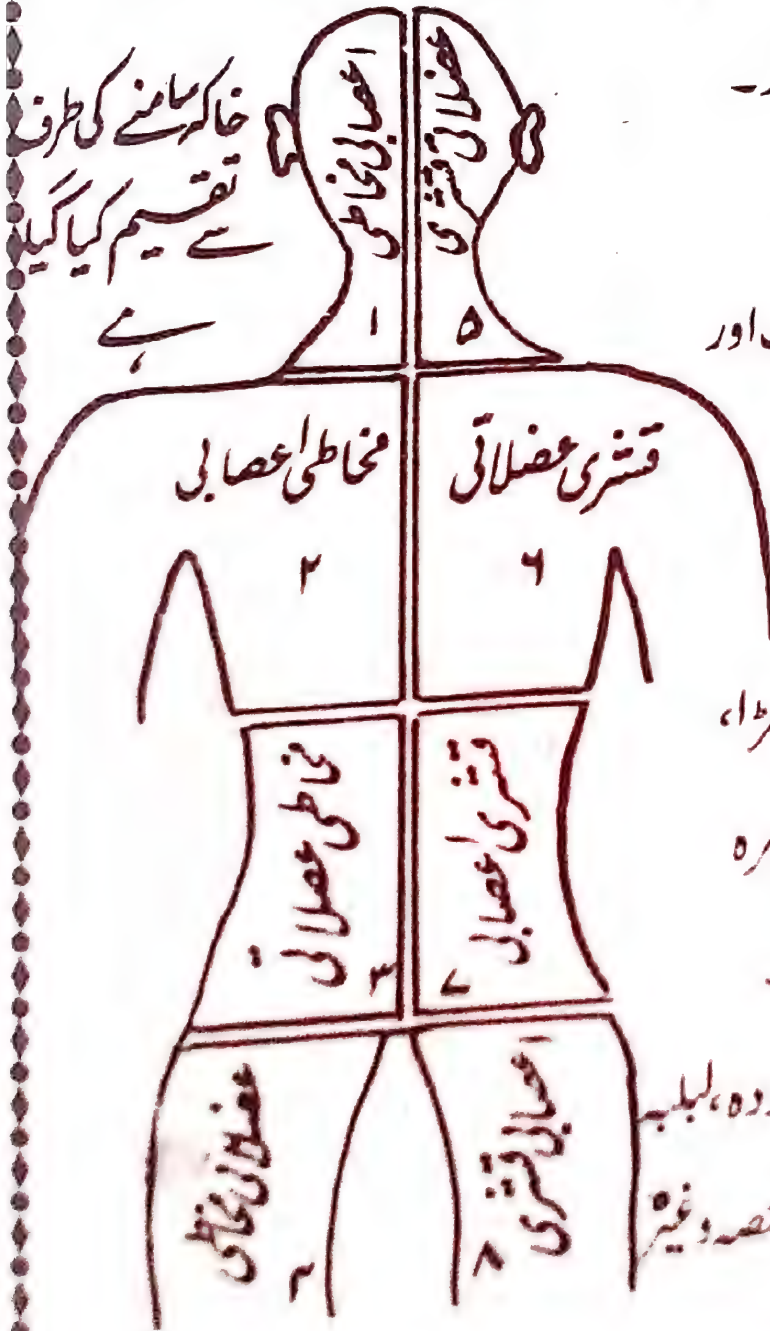 خاکہ سامنے کی طرف
سے تقسیم کیا گیا
ہے
اعصابی مخاطی
۱
عضلاتی قشری
۵
مخاطی اعصابی
۲
قشری عضلاتی
۶
مخاطی عضلاتی
۳
قشری اعصابی
۷
عضلاتی مخاطی
۴
اعصابی قشری
۸
اور
لبلبہ
وغیرہ